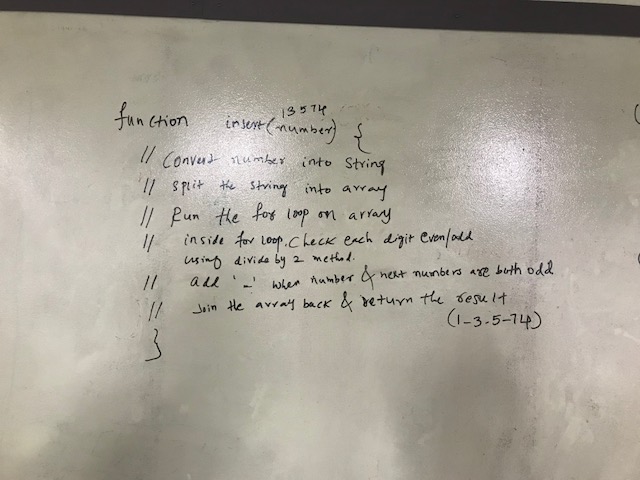 13574
function insert(number) {
// Convert number into String
// Split the String into array
// Run the for loop on array
// inside for loop. Check each digit even/odd
using divide by 2 method.
// add '-' when number & next numbers are both odd
// Join the array back & return the result
(1-3-5-74)
}